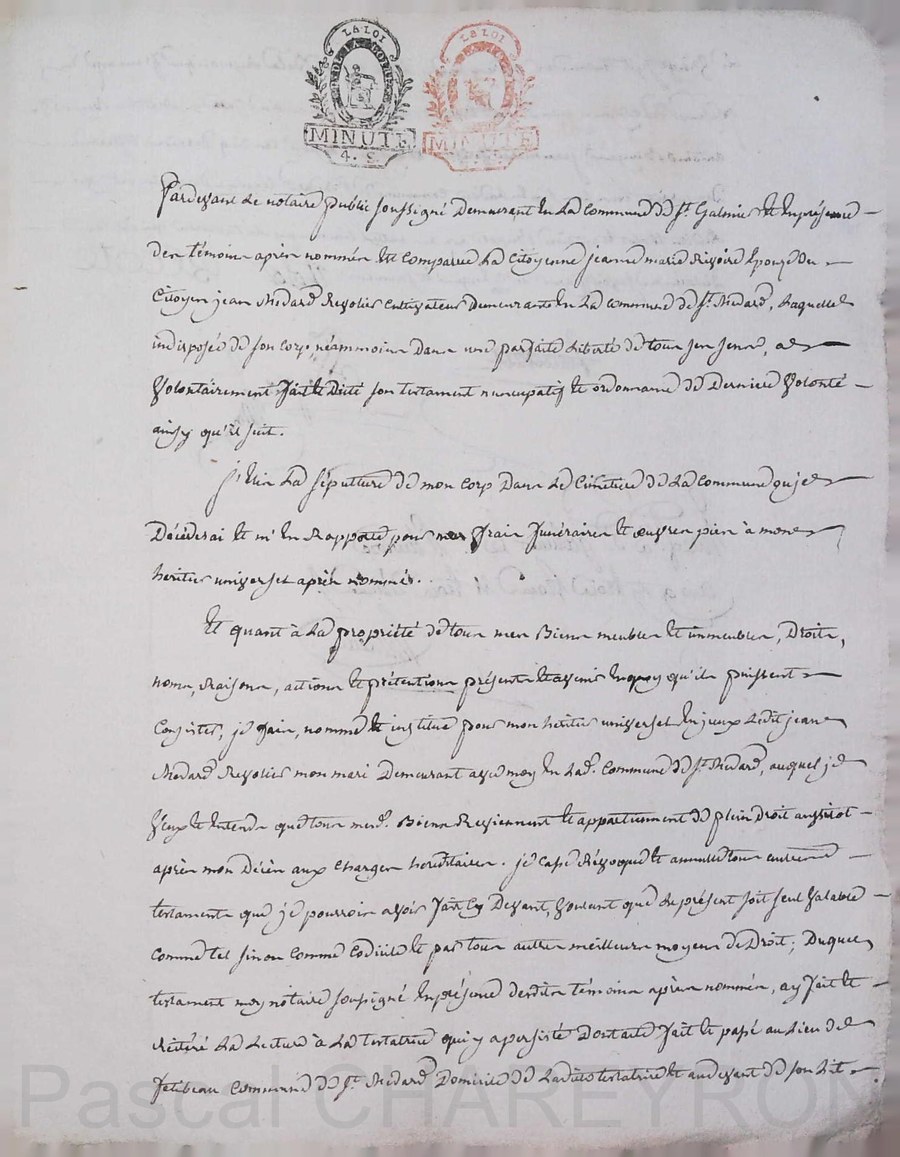 LA LOI
MINUTE
4. S.
LA LOI
MINUTE
Pardevant Le notaire public soussigné Demeurant En La Commune de St. Galmier Et En présence
des témoins après nommés Est Comparue La Citoyenne jeanne marie Rivoire Epouze du
Citoyen jean Medard Revolier Cultivateur Demeurante En La Commune de St. Medard, Laquelle
indisposée de son Corp, néammoins Dans une parfaite Liberté de tous ses sens, a
Volontairement fait Et Dicté son testament nuncupatif Et ordonnance de Derniere Volonté
ainsy qu'il suit.
J'Elis La sépulture de mon Corp Dans Le Cimetiere de La Commune ou je
Décéderai Et m'En Rapporte pour mes frais funéraires Et œuvres pies à mon
héritier universel après nommé.
Et quant à La propriété de tous mes Biens meubles Et immeubles, Droits,
noms, Raisons, actions Et prétentions présents Et avenir En quoy qu'ils puissent
Consister, je fais, nomme Et institue pour mon héritier universel En jceux Ledit jean
Medard Revolier mon mari Demeurant avec moy En Lad. Commune de St. Medard, auquel je
Veux Et Entends que tous mesd. Biens Reviennent Et appartiennent de plein Droit aussitot
après mon Décès aux Charges héréditaires. je Casse Révoque Et annulle tous autres
testaments que je pourrois avoir fait Cy Devant, Voulant que Le présent soit seul Valable
Comme tel sinon Comme Codicile Et par tous autres meilleurs moyens de Droit; Duquel
testament moy notaire soussigné En présence desdits témoins après nommés, ay fait Et
Réitéré La Lecture à La testatrice qui y a persisté Dont acte fait Et passé au Lieu de
Commune de St. Medard Domicile de Ladite testatrice Et au devant de son Lit
Pascal CHAREYRON